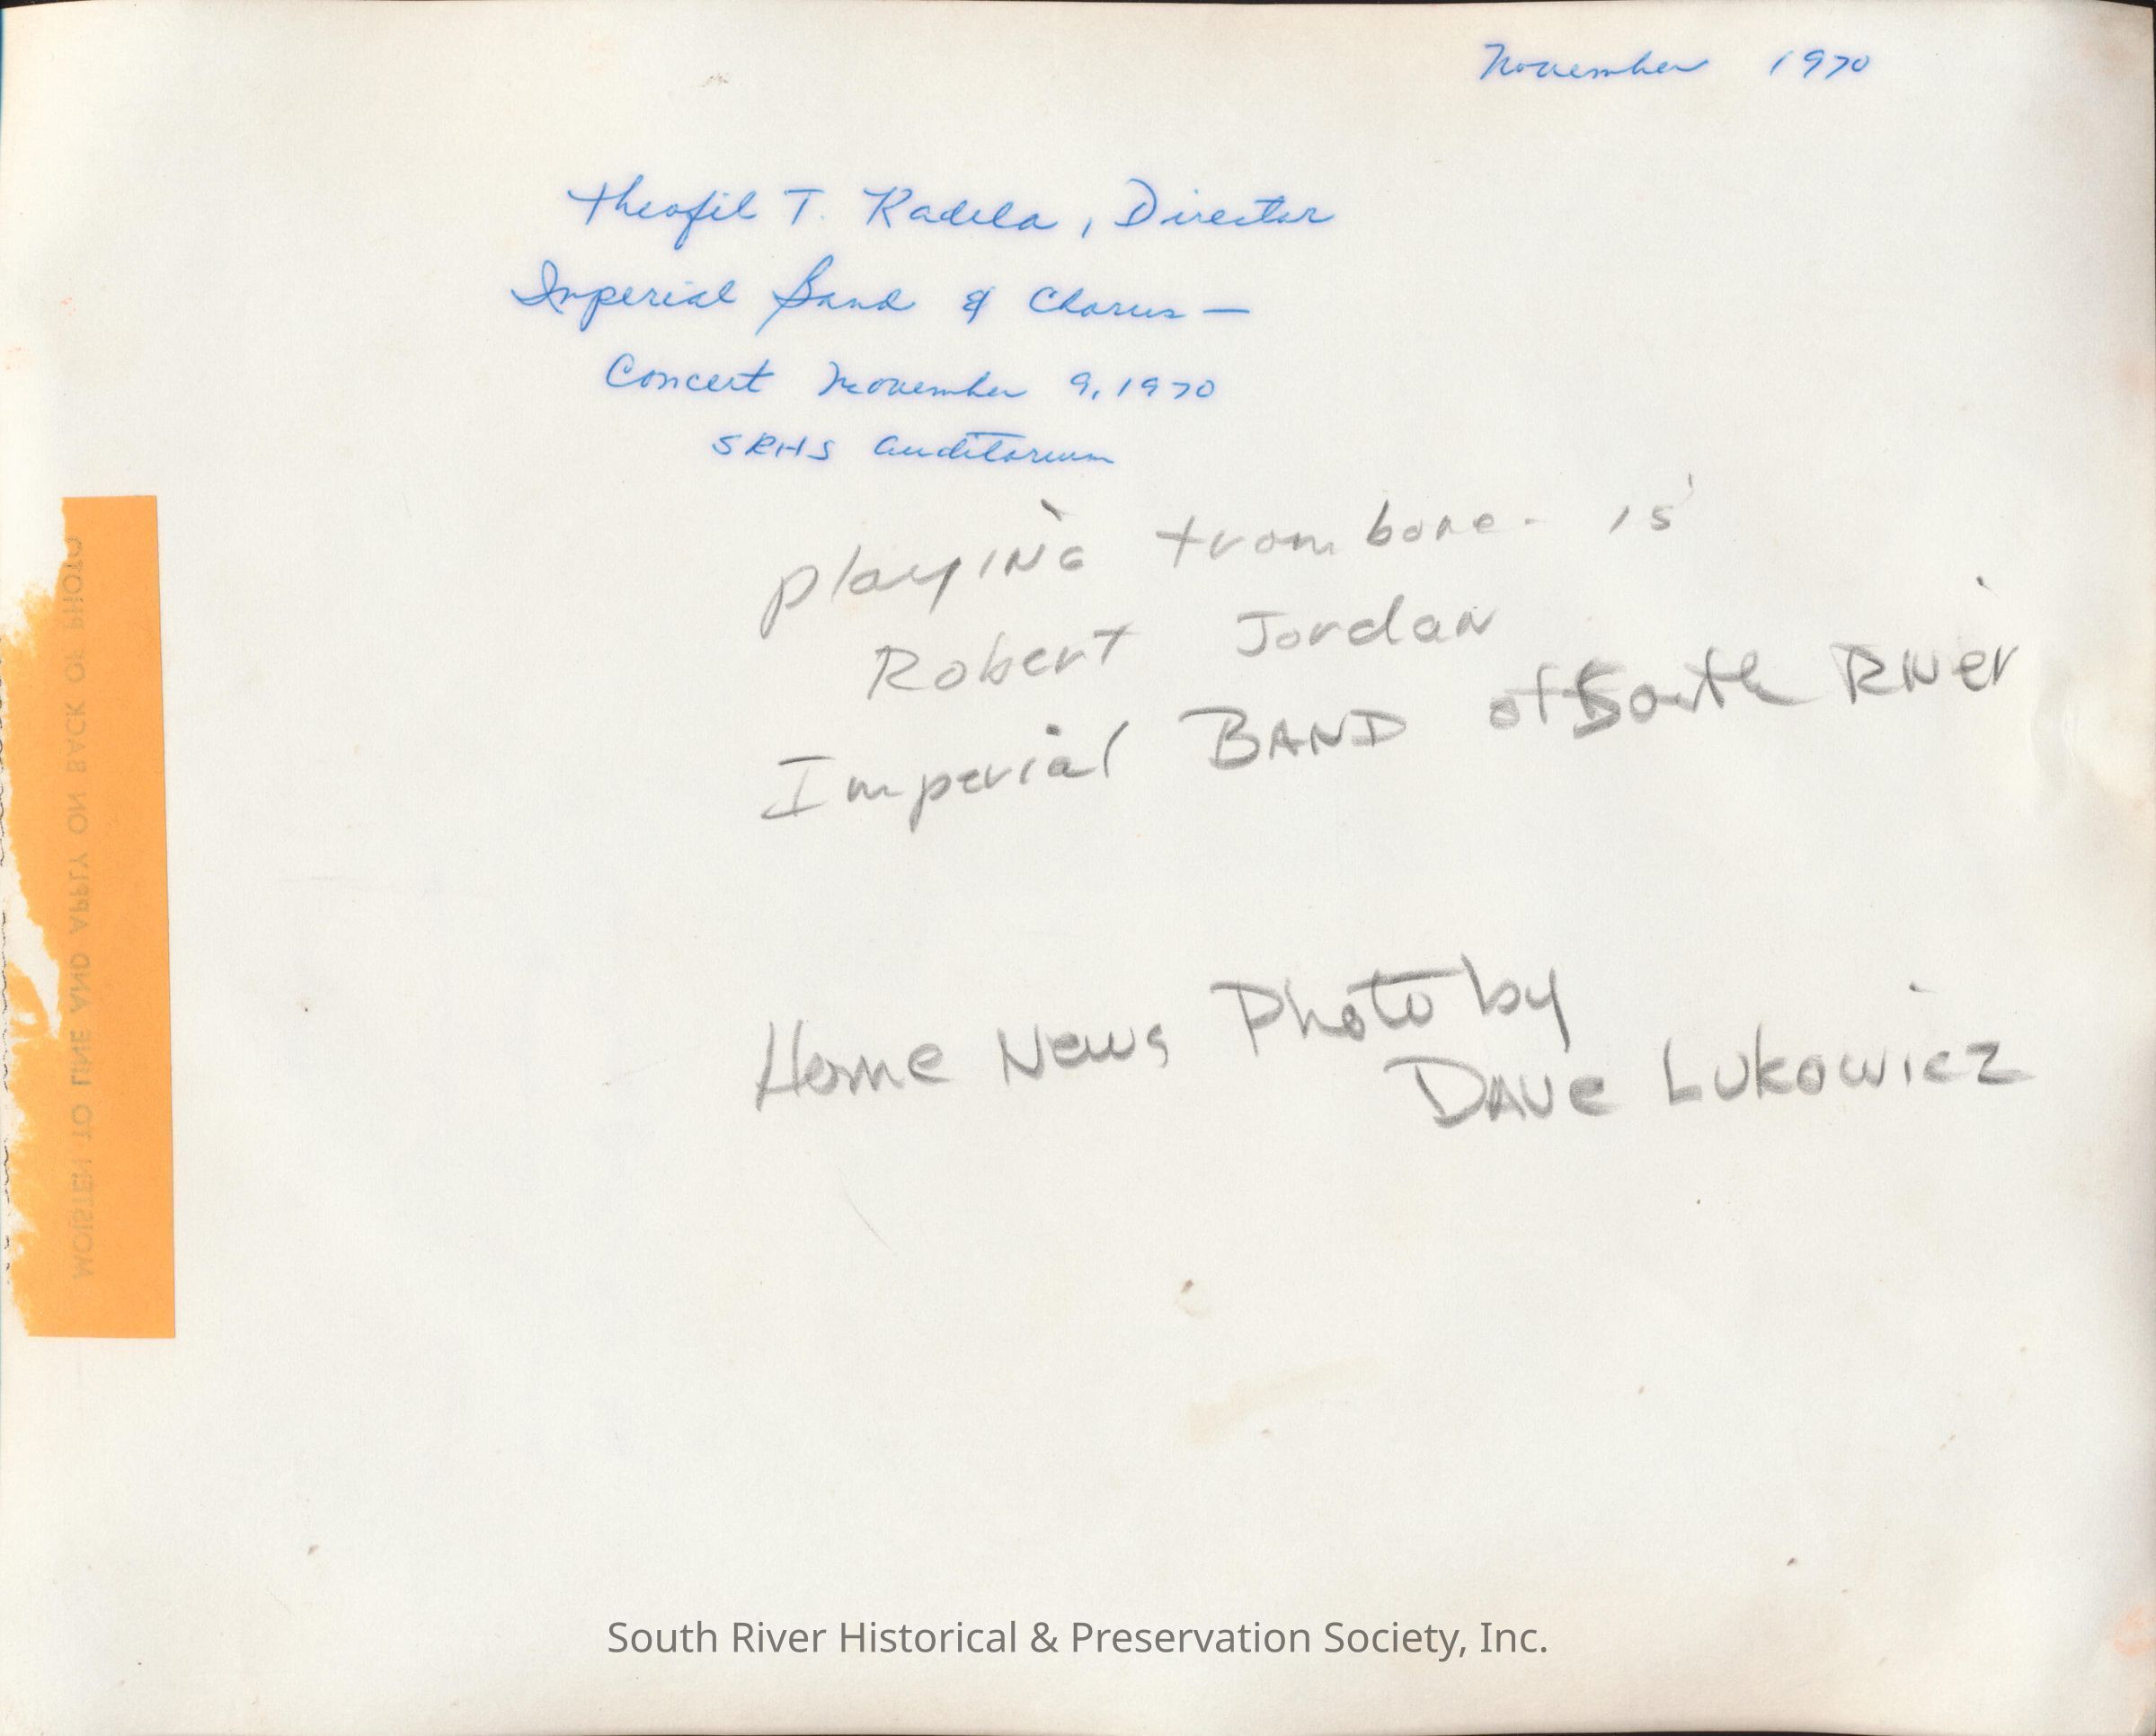 November 1970
Theofil T. Kadela, Director
Imperial Band & Chorus —
Concert November 9, 1970
SRHS Auditorium
playing trombone - is
Robert Jordan
Imperial BAND of South River
Home News Photo by
Dave Lukowicz
MOISTEN TO LINE AND APPLY ON BACK OF PHOTO
South River Historical & Preservation Society, Inc.